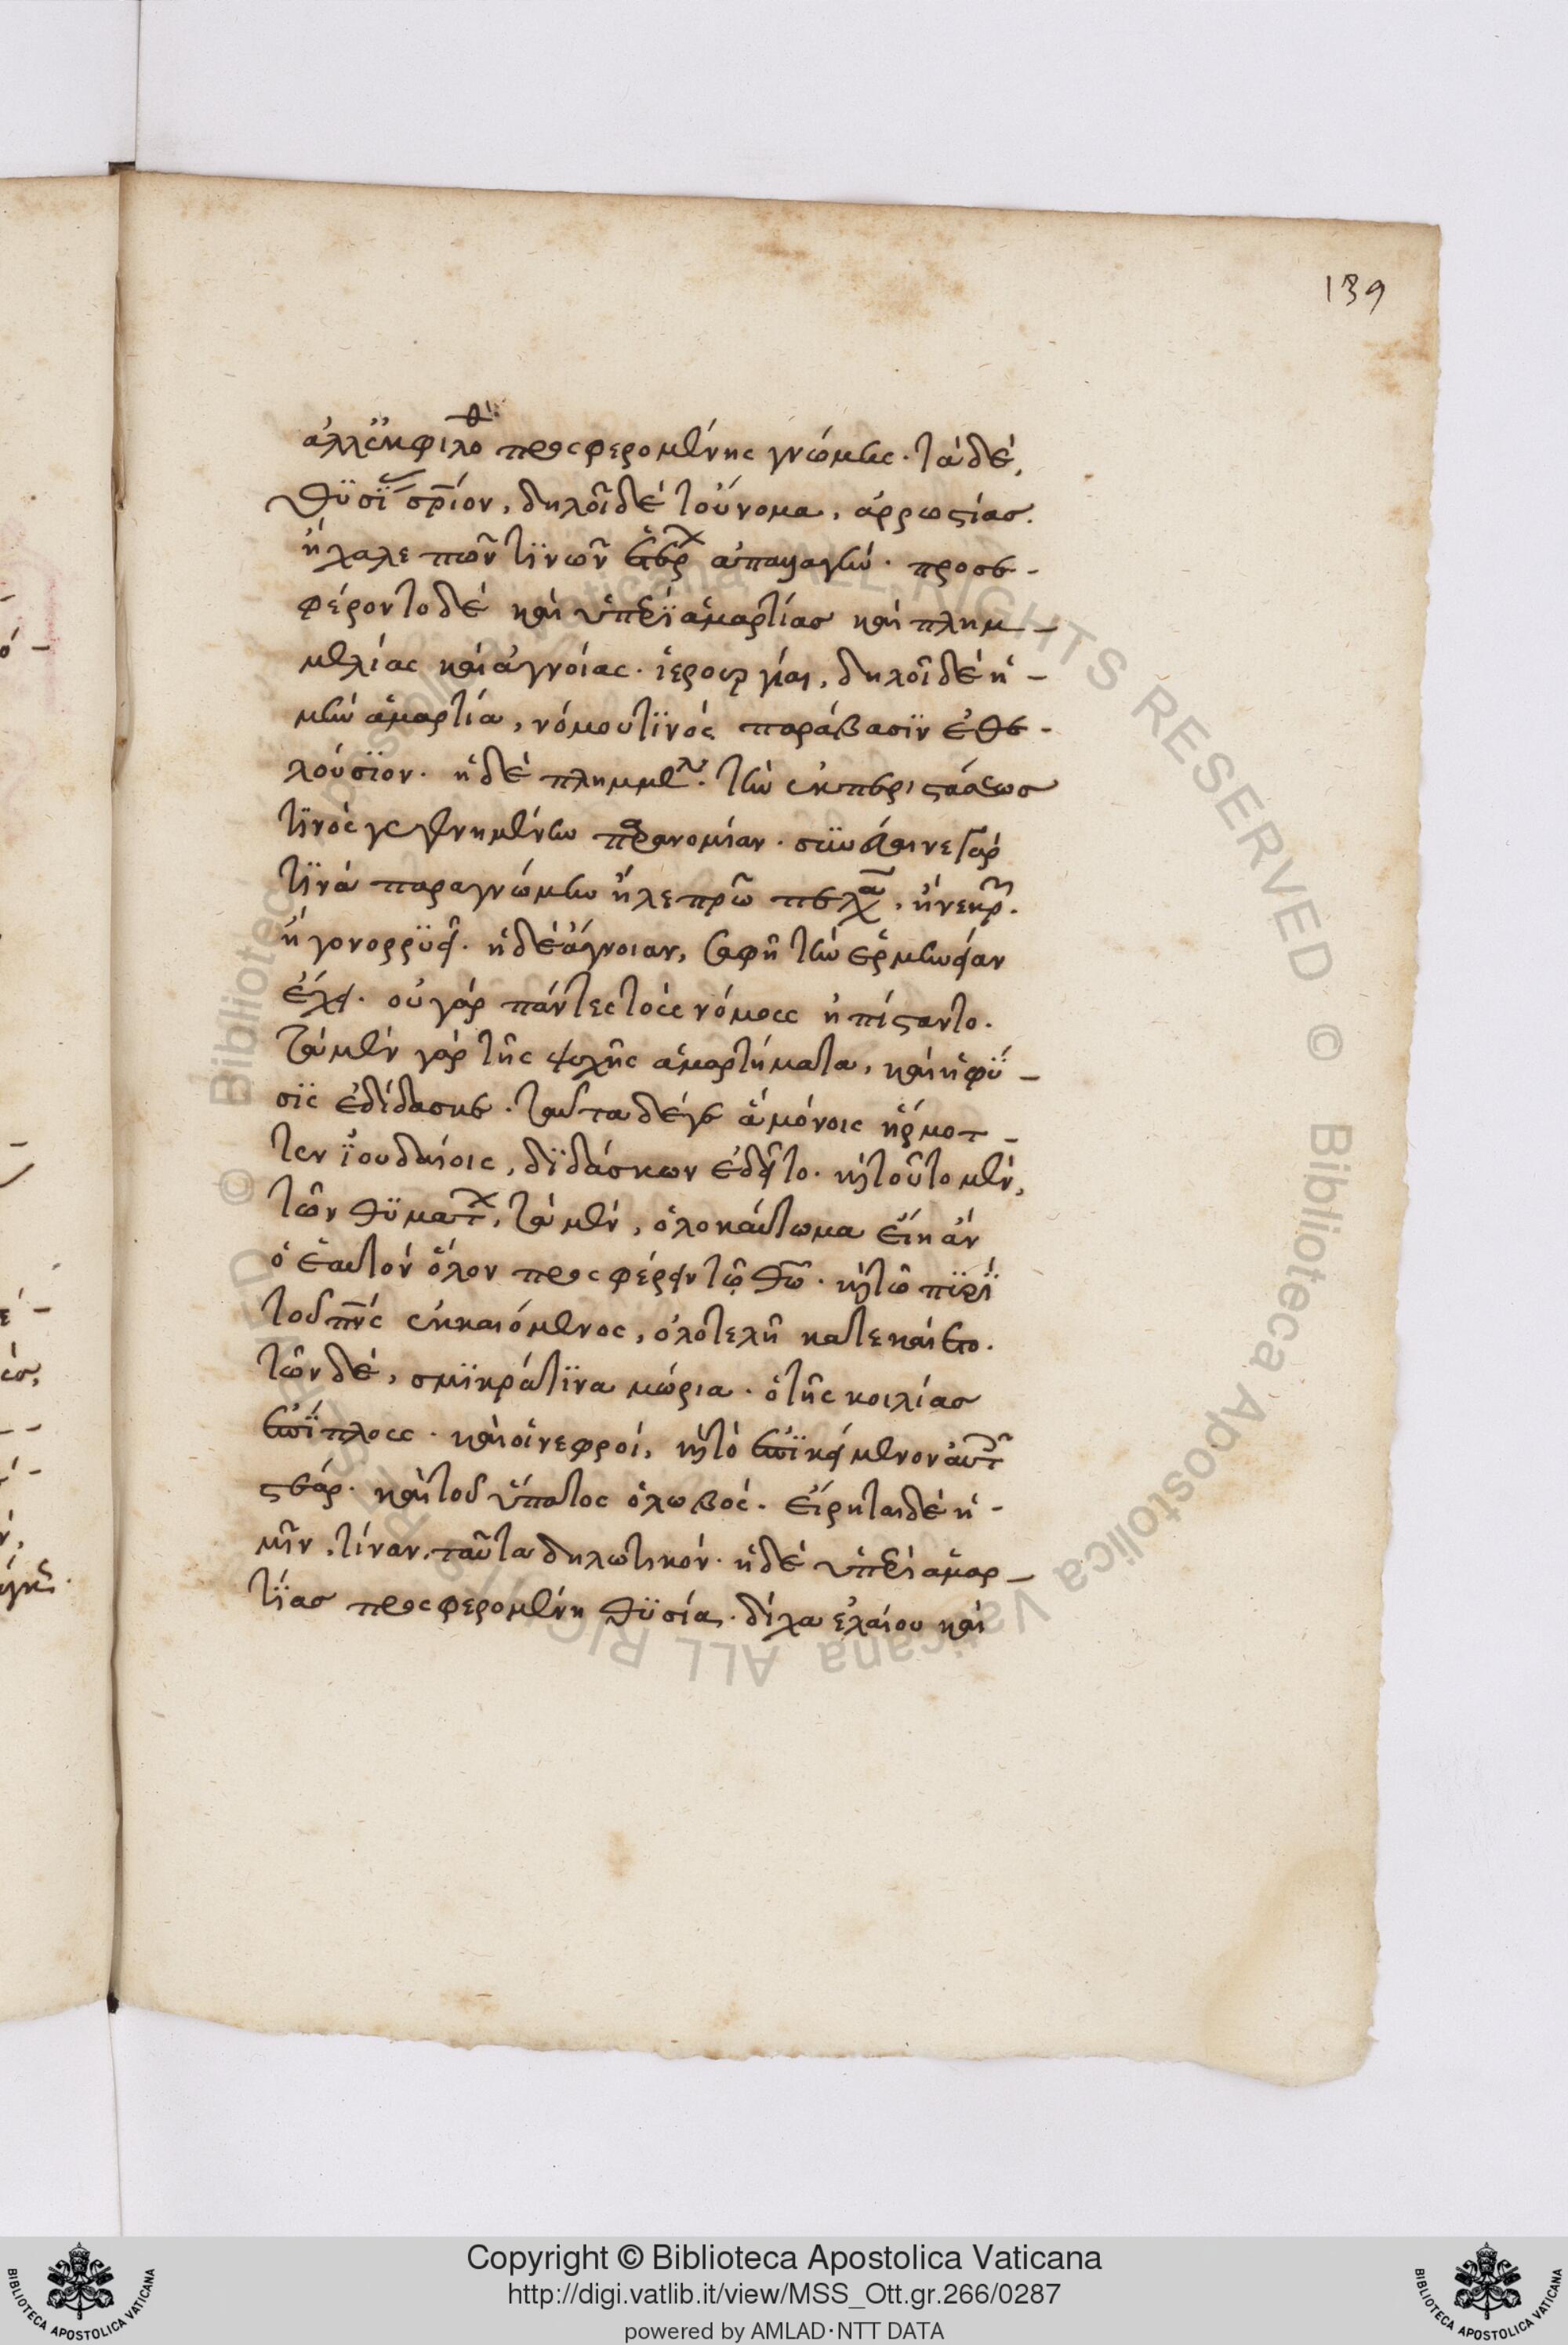 139
ἀλλ' ἐκ φιλοθ προσφερομένης γνώμης. τὰ δέ,
θϋσϊ σρίον, δηλοῖ δὲ τοὔνομα, ἀρρωστίας.
ἢ χαλεπῶν τϊνῶν ἑτέρ ἀπαλλαγήν. προσε-
φέροντο δὲ καὶ ὑπὲρ ἁμαρτίας καὶ πλημ-
μελίας καὶ ἀγνοίας. ἱερουργίαι, δηλοῖ δὲ ἡ
μὲν ἁμαρτία, νόμου τϊνὸς παράβασϊν ἐθε-
λούσϊον. ἡ δὲ πλημμελ. τὴν ἐκ περιστάσεως
τϊνὸς γεγενημένην παρανομίαν. συνέβαινε γὰρ
τϊνὰ παρὰ γνώμην ἢ λεπρῶ πελάσαι, ἢ νεκρῶ.
ἢ γονορρϋεῖ. ἡ δὲ ἄγνοιαν, σαφῆ τὴν ἑρμηνείαν
ἔχει. οὐ γὰρ πάντες τοὺς νόμους ἠπίσταντο.
τὰ μὲν γὰρ τῆς ψυχῆς ἁμαρτήματα, καὶ ἡ φύ-
σϊς ἐδίδασκε. ταῦτα δέ γε ἃ μόνοις ἥρμοτ-
τεν ϊουδαίοις, δϊδάσκων ἐδεῖτο. καὶ τοῦτο μὲν,
τῶν θϋμάτων, τὰ μὲν, ὁλοκαύτωμα εἴη ἂν
ὁ ἑαυτὸν ὅλον προσφέρειν τῷ θῶ. καὶ τῶ πϋρὶ
τοῦ πνς ἐκκαιόμενος, ὁλοτελῆ κατεκαίετο.
τῶν δὲ, σμϊκρά τϊνα μόρια. ὁ τῆς κοιλίας
ἐπίπλους. καὶ οἱ νεφροί, καὶ τὸ ἐπϊκείμενον αὐτοῖς
στέαρ. καὶ τοῦ ὕπατος ὁ λωβός. εἴρηται δὲ ἡ-
μῖν, τίναν, ταῦτα δηλωτικόν. ἡ δὲ ὑπὲρ ἁμαρ-
τϊας προσφερομένη θϋσία. δίχα ἐλαίου καὶ
Copyright © Biblioteca Apostolica Vaticana
http://digi.vatlib.it/view/MSS_Ott.gr.266/0287
powered by AMLAD·NTT DATA
BIBLIOTECA APOSTOLICA VATICANA
BIBLIOTECA APOSTOLICA VATICANA
© Biblioteca Apostolica Vaticana ALL RIGHTS RESERVED © Biblioteca Apostolica Vaticana ALL RIGHTS RESERVED